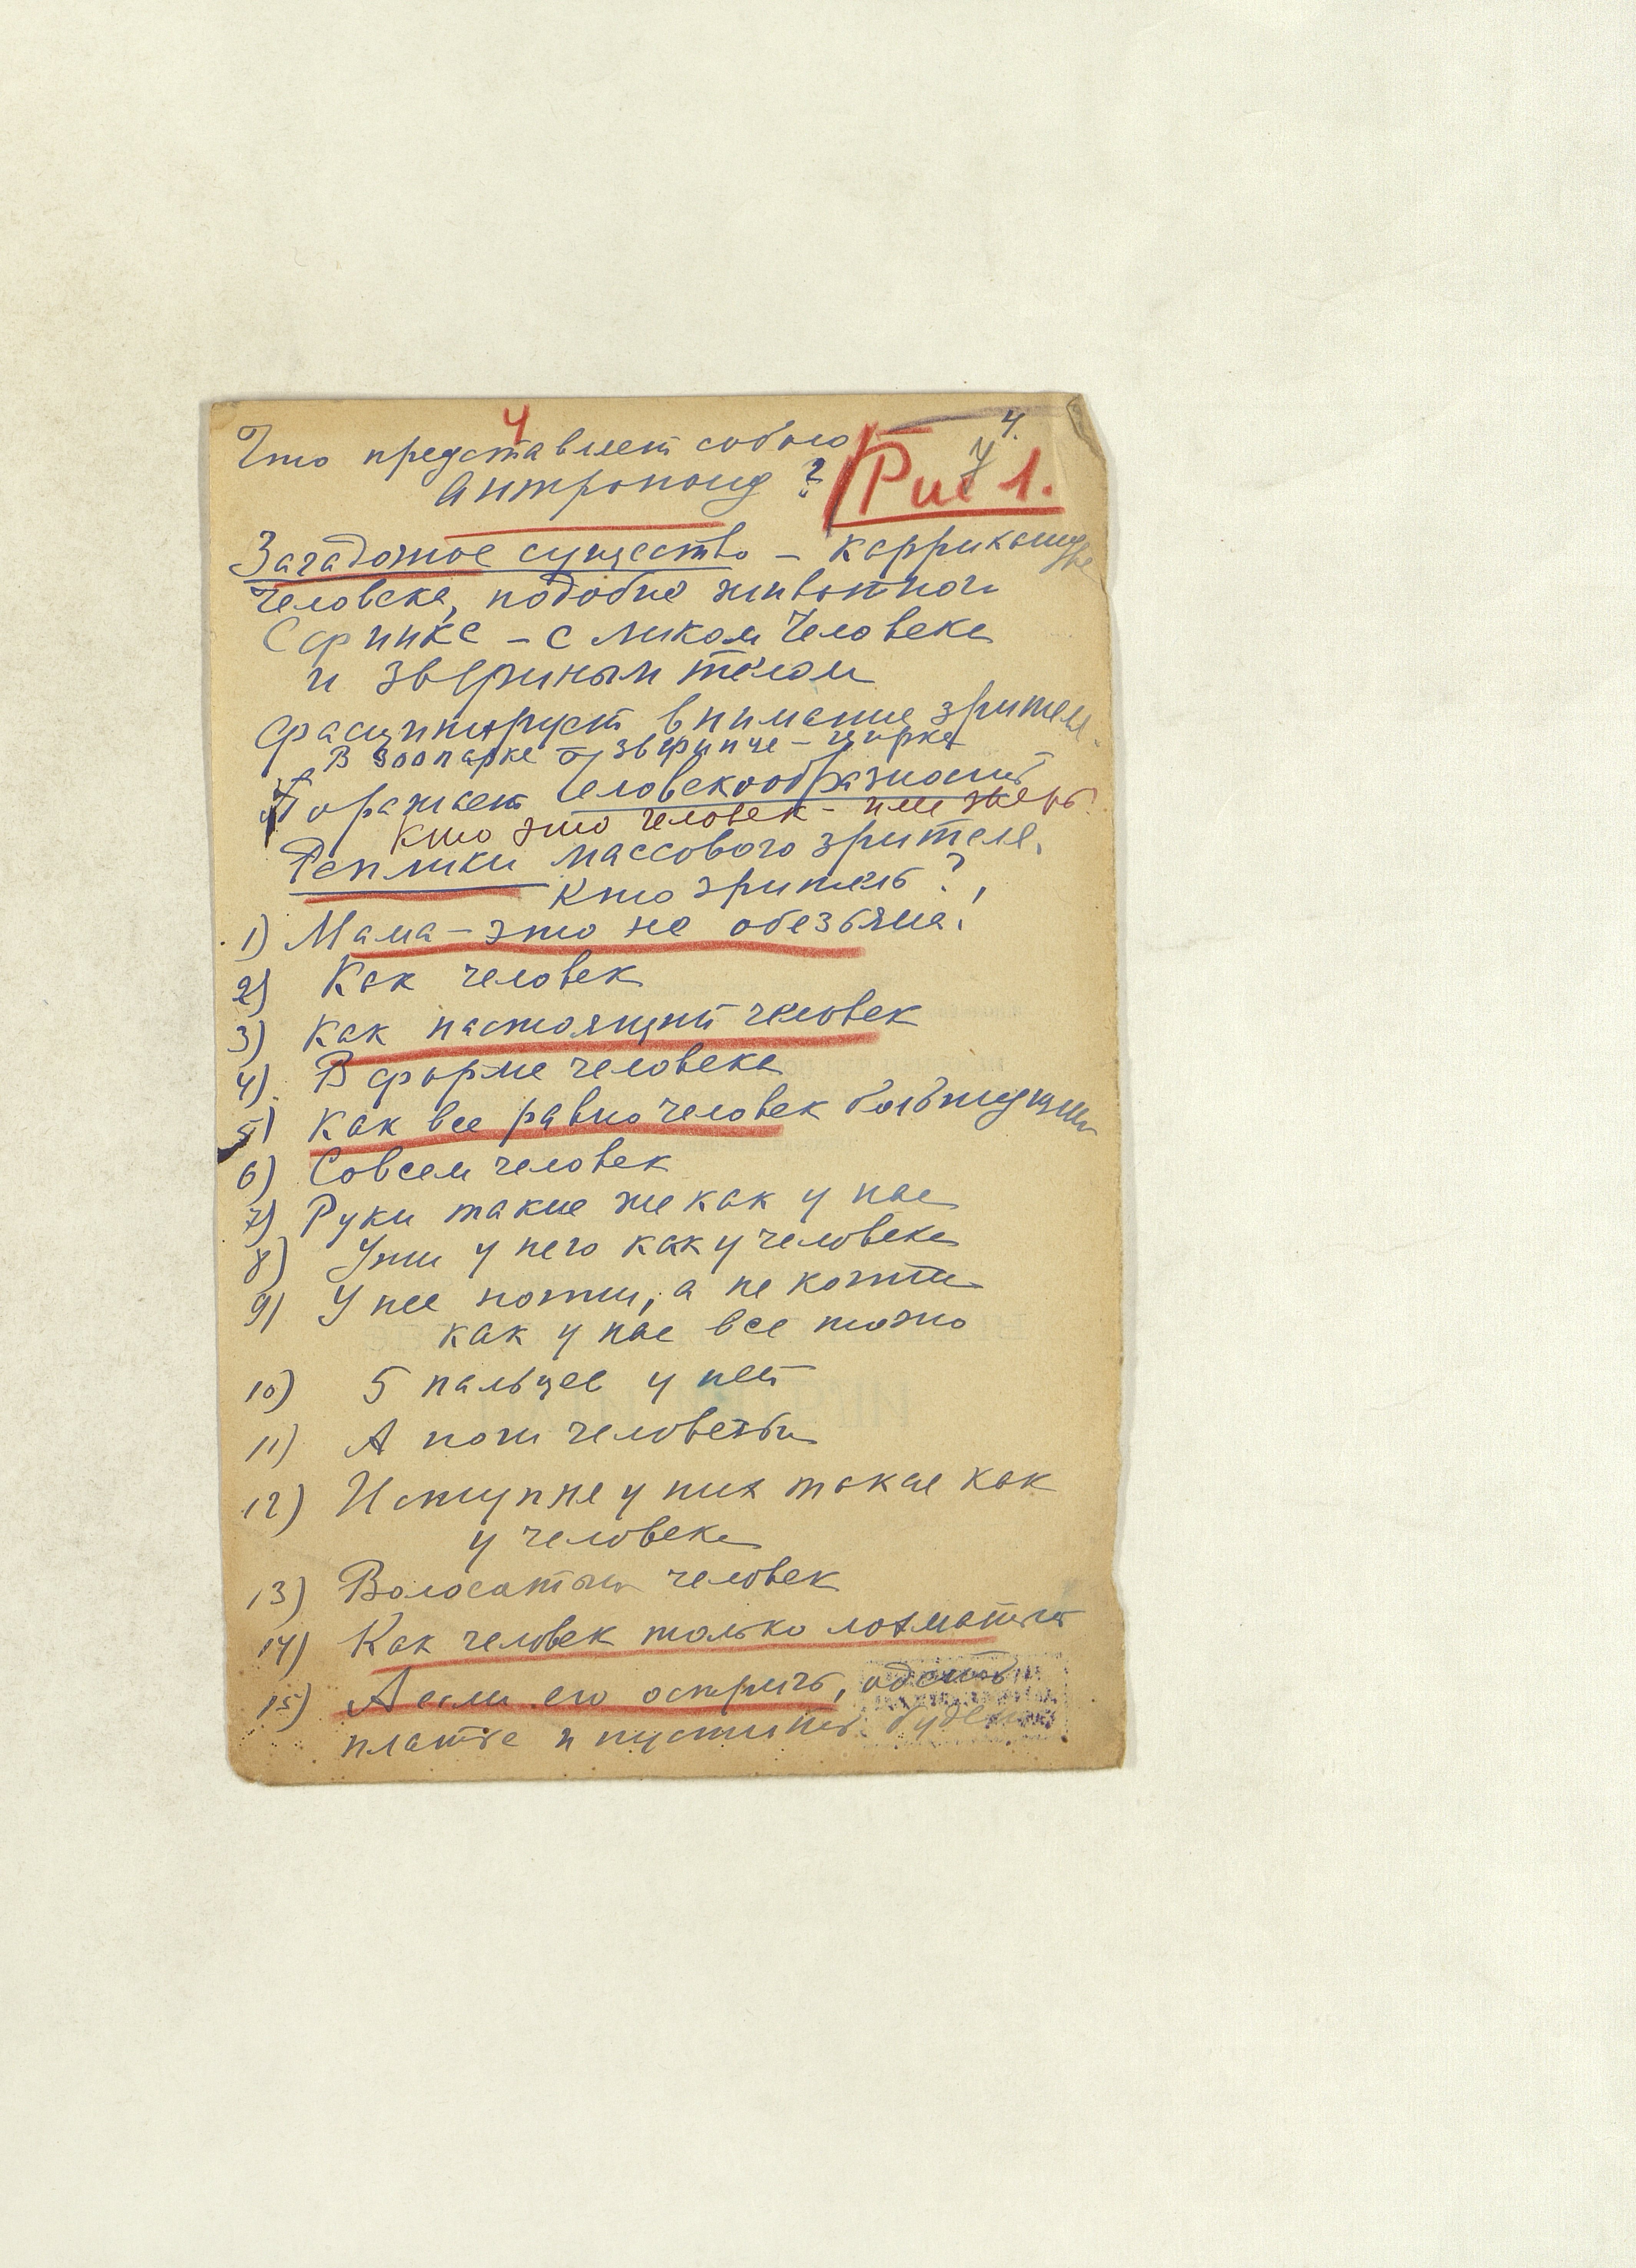 4
4.
7
Что представляет собою
Антропоид?
Рис 1.
Загадочное существо – каррикатура
человека, подобие животного
Сфинкс – с ликом человека
и звериным телом
Фасцинирует внимание зрителя.
В зоопарке зверинце – цирке
Поражает человекообразность
Кто это человек – или зверь?
Реплики массового зрителя.
Кто зритель?
1) Мама – это не обезьяна!
2) Как человек
3) Как настоящий человек
4) В форме человека
5) Как все равно человек
6) Совсем человек
7) Руки такие же как у нас
8) Уши у него как у человека
9) У нее ногти, а не когти
как у нас все точно
10) 5 пальцев у ней
11) А ноги человечьи
12) И ступне у них такие как
у человека
13) Волосатый человек
14) Как человек только лохматый
15) А если его остричь, одеть
платье и пустить будет